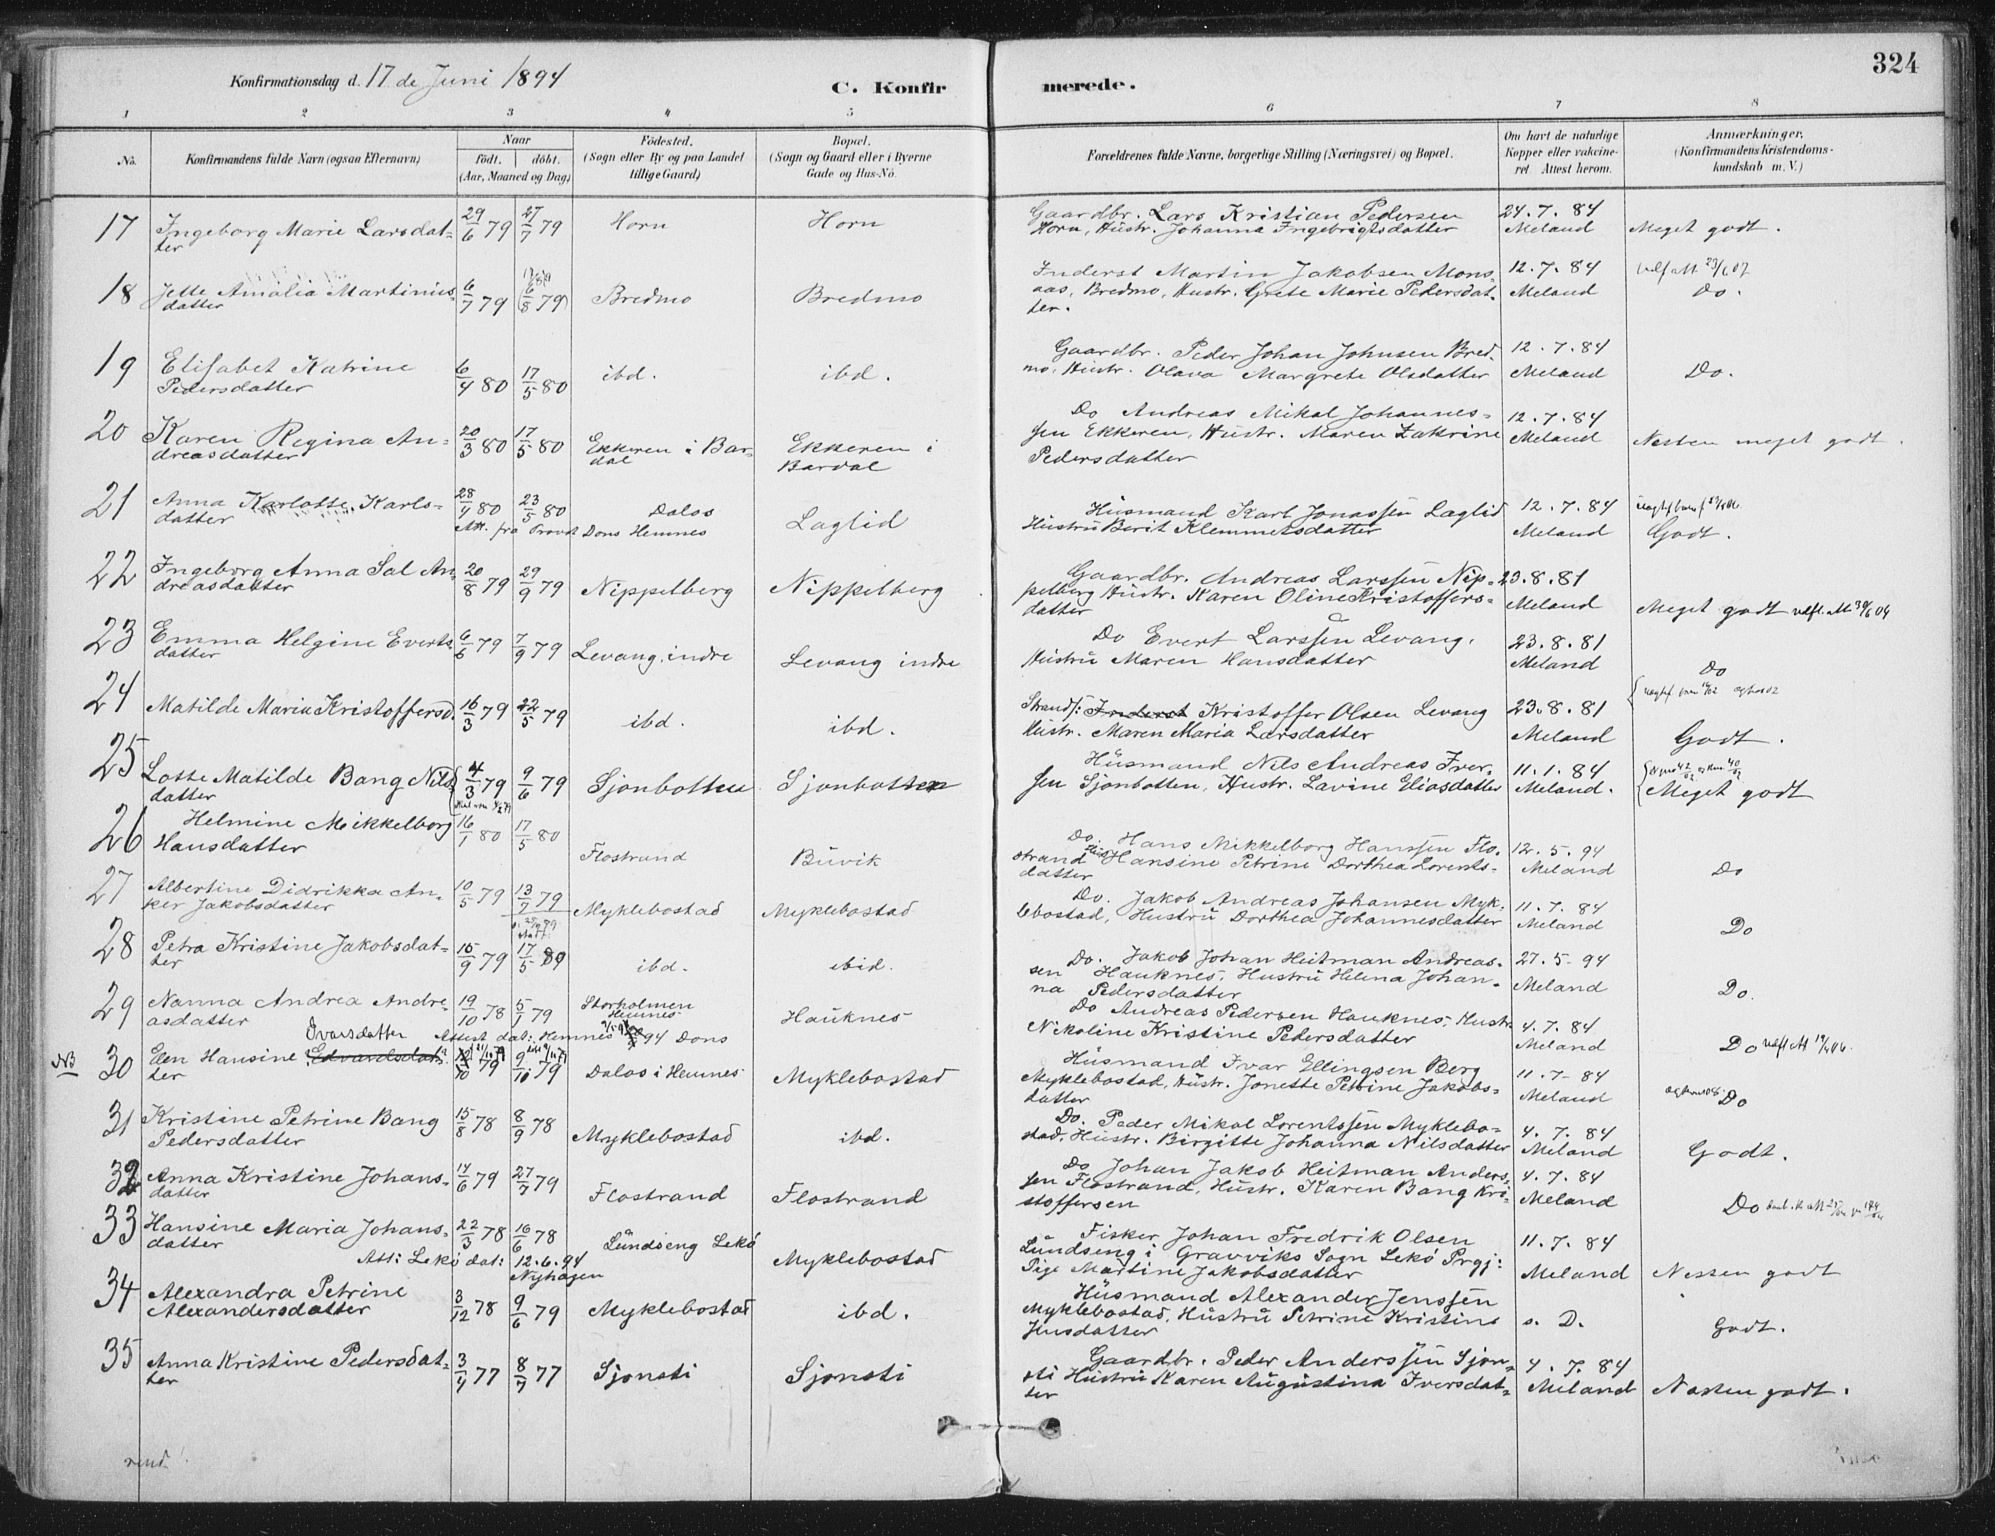 324
Konfirmationsdag d. 17 de Juni 1894
C. Konfirmerede.
1 2 3 4 5 6 7 8
No. Konfirmandens fulde Navn (ogsaa Efternavn) Naar födt. döbt. (Aar, Maaned og Dag) Födested. (Sogn eller By og paa Landet tillige Gaard) Bopæl. (Sogn og Gaard eller i Byerne Gade og Hus-No. Forældrenes fulde Navne, borgerlige Stilling (Næringsvei) og Bopæl. Om havt de naturlige Kopper eller vakcineret. Attest herom. Anmærkninger. (Konfirmandens Kristendomskundskab m. V.)
17 Ingeborg Marie Larsdatter 29/6 79 27/7 79 Horn Horn Gaardbr. Lars Kristian Pedersen Horn, Hustr. Johanna Ingebrigtsdatter 24.7.84 Meland Meget godt.
18 Jette Amalia Martinusdatter 6/7 79 (6/8 79) Bredmo Bredmo Inderst Martin Jakobsen Monsaas, Bredmo, Hustr. Grete Marie Pedersdatter. 12.7.84 Meland Do.
19 Elisabet Katrine Pedersdatter 6/4 80 17/5 80 ibd. ibd. Gaardbr. Peder Johan Johnsen Bredmo, Hustr. Olava Margrete Olsdatter 12.7.84 Meland Do.
20 Karen Regina Andreasdatter 20/3 80 17/5 80 Ekkeren i Bardal Ekkeren i Bardal Do Andreas Mikal Johannessen Ekkeren, Hustr. Maren Zakrine Pedersdatter 12.7.84 Meland Nesten meget godt.
21 Anna Karlotte Karlsdatter 28/4 80 23/5 80 Att. fra Provst Dons Hemnes Dalos Laglid Husmand Karl Jonassen Laglid Hustru Berit Klemmetsdatter 12.7.84 Meland Godt.
22 Ingeborg Anna Sal Andreasdatter 20/8 79 29/9 79 Nippelberg Nippelberg Gaardbr. Andreas Larssen Nippelberg Hustr. Karen Oline Kristoffersdatter 23.8.81 Meland Meget godt
23 Emma Helgine Evertsdatter 6/6 79 7/9 79 Levang, indre Levang indre Do Evert Larssen Levang. Hustru Maren Hansdatter 23.8.81 Meland Do
24 Matilde Maria Kristoffersd. 16/3 79 22/5 79 ibd. ibd. Strands: Inderst Kristoffer Olsen Levang Hustr. Maren Maria Larsdatter 23.8.81 Meland Godt.
25 Lotte Matilde Bang Nilsdatter 4/3 79 9/6 79 Sjonbotten Sjonbotten Husmand Nils Andreas Iversen Sjonbotten, Hustr. Lavine Eliasdatter 11.1.84 Meland. Meget godt
26 Helmine Mikkelborg Hansdatter 16/1 80 17/5 80 Flostrand Buvik Do. Hans Mikkelborg Hanssen Flostrand Hansine Petrine Dorthea Lorentsdatter 12.5.94 Meland Do
27 Albertine Didrikka Anker Jakobsdatter 10/5 79 13/7 79 Myklebostad Myklebostad Do. Jakob Andreas Johansen Myklebostad, Hustru Dorthea Johannesdatter 11.7.84 Meland Do
28 Petra Kristine Jakobsdatter 15/9 79 17/5 ibd. ibid. Do. Jakob Johan Heitman Andreassen Hauknes, Hustru Helena Johanna Pedersdatter 27.5-94 Meland Do.
29 Nanna Andrea Andreasdatter 19/10 78 5/1 79 Storholmen Hemnes Hauknes Do Andreas Pedersen Hauknes, Hustr. Nikoline Kristine Pedersdatter 4.7.84 Meland Do
Attest dat: Hemnes 94 Dons
NB 30 Elen Hansine Edvardsdatter Ivarsdatter 79 9/10 79 Dalos i Hemnes Myklebostad Husmand Ivar Ellingsen Berg Myklebostad, Hustr. Jonette Petrine Jakobsdatter 11.7-84 Meland Do
31 Kristine Petrine Bang Pedersdatter 15/8 78 8/9 78 Myklebostad ibd. Do. Peder Mikal Lorentssen Myklebostad, Hustr. Birgitte Johanna Nilsdatter 4.7.84 Meland Godt.
32 Anna Kristine Johansdatter 14/6 79 27/7 79 Flostrand Flostrand Do Johan Jakob Heitman Anderssen Flostrand, Hustr. Karen Bang Kristoffersen 4.7.84 Meland Do
33 Hansine Maria Johansdatter 22/3 78 16/6 78 Lundseng Lekö Myklebostad Fisker Johan Fredrik Olsen Lundseng i Gravviks Sogn Lekö Prgj: Pige Martine Jakobsdatter 11.7.84 Meland Nesten godt
Att: Lekö dat: 12.6.94
34 Alexandra Petrine Alexandersdatter 3/12 78 9/6 79 Nyhagen Myklebostad ibd. Husmand Alexander Jenssen Myklebostad, Hustru Petrine Kristine Jensdatter s. D. Godt.
35 Anna Kristine Pedersdatter 3/4 77 8/7 77 Sjonsti Sjonsti Gaardbr. Peder Anderssen Sjonsti Hustru Karen Augustina Iversdatter 4.7.84 Meland Næsten godt.